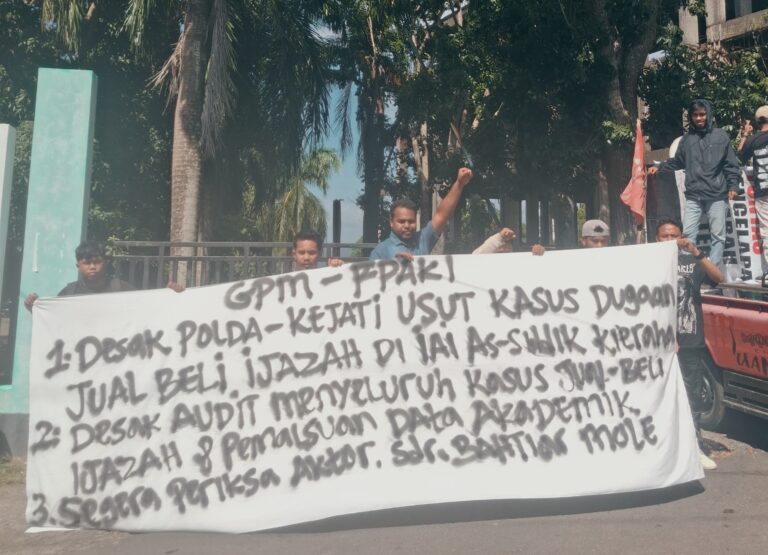 GPM - FPAKI
1. Desak POLDA-KEJATI USUT KASUS DUGAAN
JUAL BELI IJAZAH DI IAI AS-Siddik Kieraha
2. Desak AUDIT menyeluruh kasus JUAL-BELI
IJAZAH & Pemalsuan DATA AKADEMIK
3. Segera Periksa Aktor. Sdr. BAHTIAR MOLE